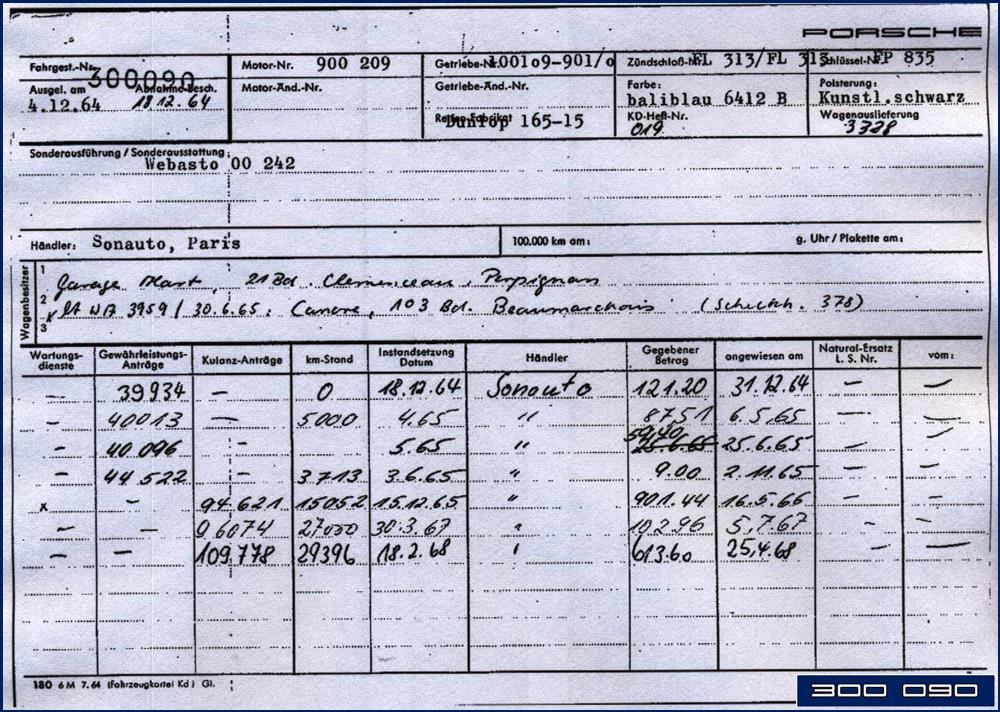 PORSCHE
Fahrgest.-Nr. 300090 Motor-Nr. 900 209 Getriebe-Nr. 100109-901/0 Zündschloß-Nr. FL 313/FL 313 Schlüssel-Nr. FP 835
Ausgel. am 4.12.64 Abnahme-Besch. 18 12. 64 Motor-Änd.-Nr. Getriebe-Änd.-Nr. Farbe: baliblau 6412 B Polsterung: Kunstl.schwarz
Reifen-Fabrikat Dunlop 165-15 KD-Heft-Nr. 019 Wagenauslieferung 3328
Sonderausführung / Sonderausstattung: Webasto 00 242
Händler: Sonauto, Paris 100.000 km am: g. Uhr / Plakette am:
Wagenbesitzer
1 Garage 21 Bd. Clemenceau. Perpignan
2 lt WA 3959 / 30.6.65: Canore, 103 Bd. Beaumarchais 378)
3
Wartungsdienste Gewährleistungs-Anträge Kulanz-Anträge km-Stand Instandsetzung Datum Händler Gegebener Betrag angewiesen am Natural-Ersatz L. S. Nr. vom:
— 39934 — 0 18.12.64 Sonauto 121.20 31.12.64 — —
— 40013 — 5000 4.65 " 87.51 6.5.65 — —
— 40 096 - 5.65 " 59,40 25.6.65 25.6.65 — —
— 44 522 - 3713 3.6.65 " 9.00 2.11.65 — —
x - 94 621 15052 15.12.65 " 901.44 16.5.66 — —
— — 96074 27000 30.3.67 " 102.96 5.7.67 - -
— — 109.778 29396 18.2.68 " 613.60 25.4.68 — —
180 6 M 7. 64 (Fahrzeugkartei Kd ) Gl.
300 090